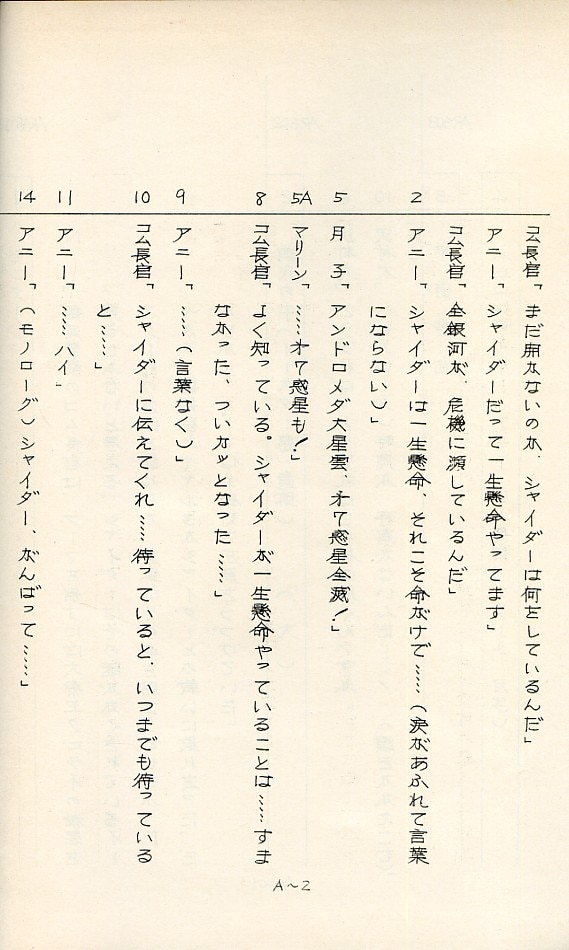 コム長官「まだ開かないのか、シャイダーは何をしているんだ」
アニー「シャイダーだって一生懸命やってます」
コム長官「全銀河が、危機に瀕しているんだ」
2 アニー「シャイダーは一生懸命、それこそ命がけで……(涙があふれて言葉
にならない)」
5 月子「アンドロメダ大星雲、オワ惑星全滅!」
5A マリーン「……オワ惑星も!」
8 コム長官「よく知っている。シャイダーが一生懸命やっていることは……すま
なかった、ついカッとなった……」
9 アニー「……(言葉なく)」
10 コム長官「シャイダーに伝えてくれ……待っていると、いつまでも待っている
と……」
11 アニー「……ハイ」
14 アニー「(モノローグ)シャイダー、がんばって……」
A~2